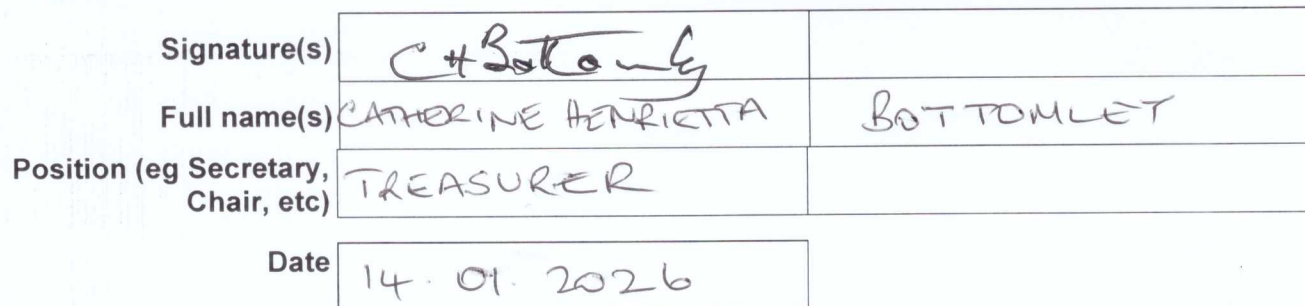 Signature(s) CHBottomley
Full name(s) CATHERINE HENRIETTA BOTTOMLEY
Position (eg Secretary,
Chair, etc) TREASURER
Date 14.01.2026